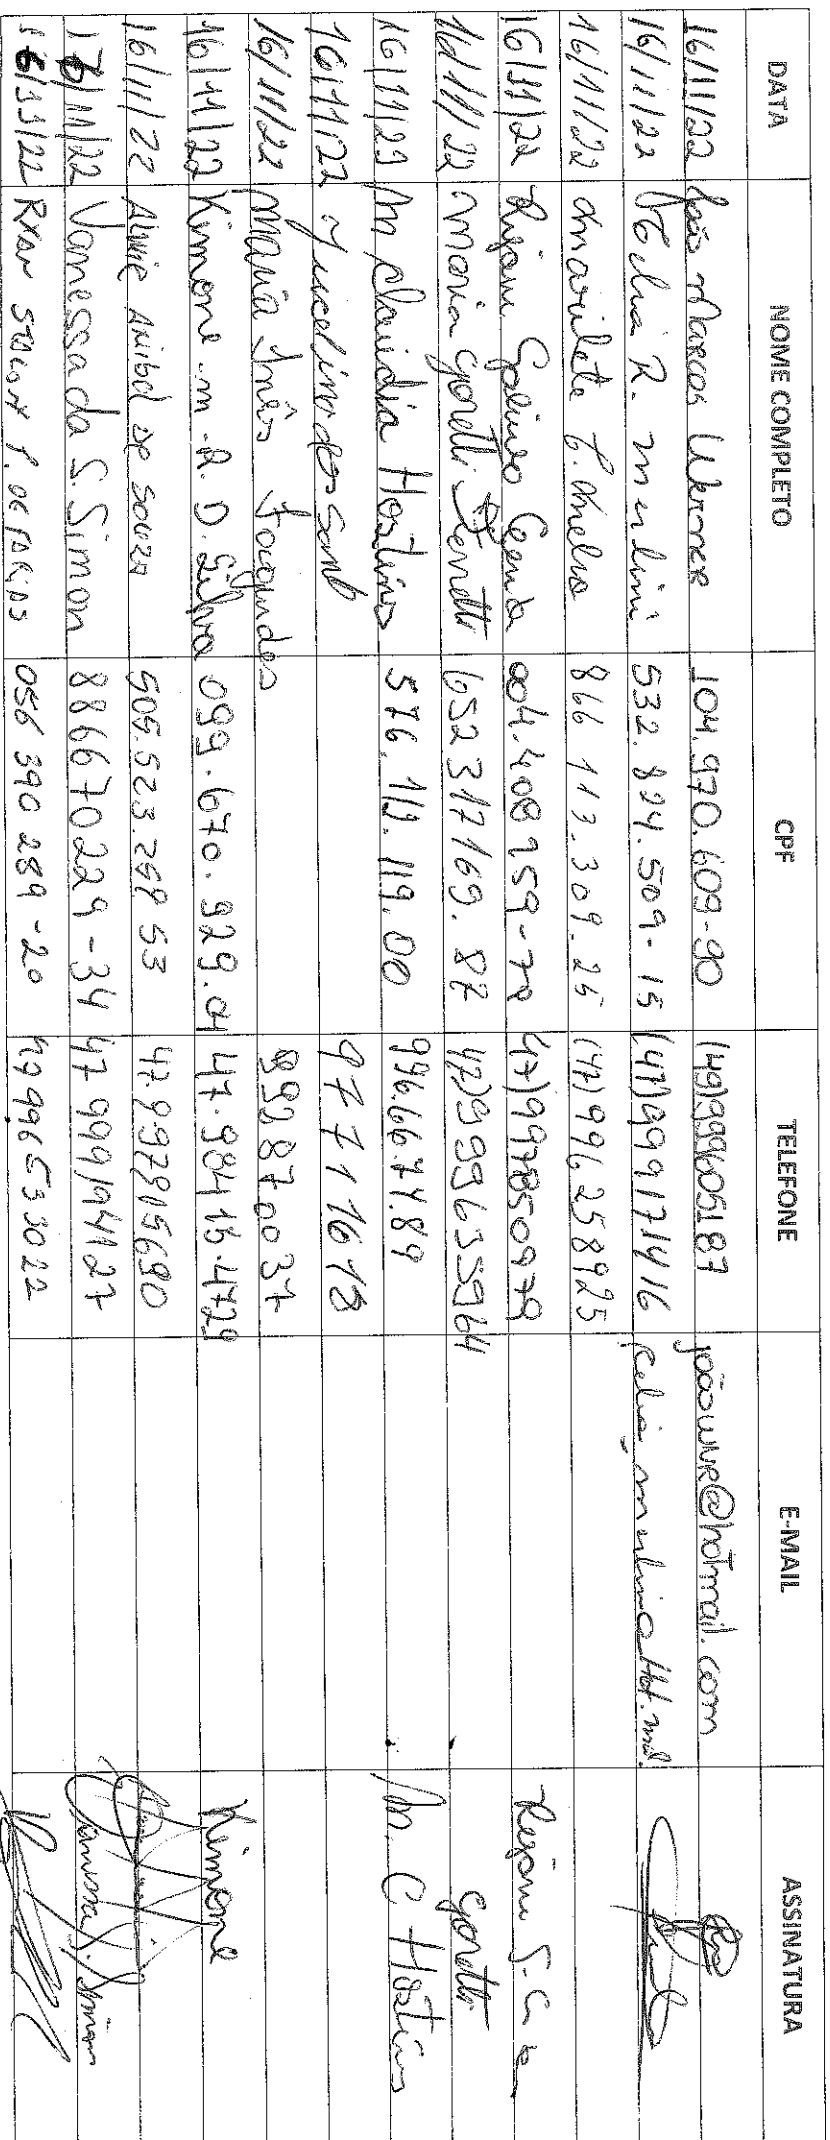 DATA NOME COMPLETO CPF TELEFONE E-MAIL ASSINATURA
16/11/22 João Marcos Werner 104.970.609-90 (49)999605187 joãownr@hotmail.com
16/11/22 Célia R. 532.824.509-15 (47)999171416
16/11/22 Marilete 866 113.309.25 (47)996258925
16/11/22 Rejane 004.408959-78 47)997850979 Rejane S.
16/11/22 Maria Goretti 652317169.87 47)999635964 Goretti
16/11/22 M Claudia Hostins 576.112.119.00 996.66.74.89 M. C Hostins
16/11/22 Jucelino dos Sant 977116 13
16/11/22 Maria Inês Fagundes 999870037
16/11/22 Kimone.m.R.D.Silva 099.670.929.01 47.98415.4729 Kimone
16/11/22 Anibal de Souza 505.523.259 53 47.997915690
16/11/22 Vanessa da S. Simon 886670229-34 47 999194127 Vanessa S. Simon
16/11/22 Ryan 056 390 289-20